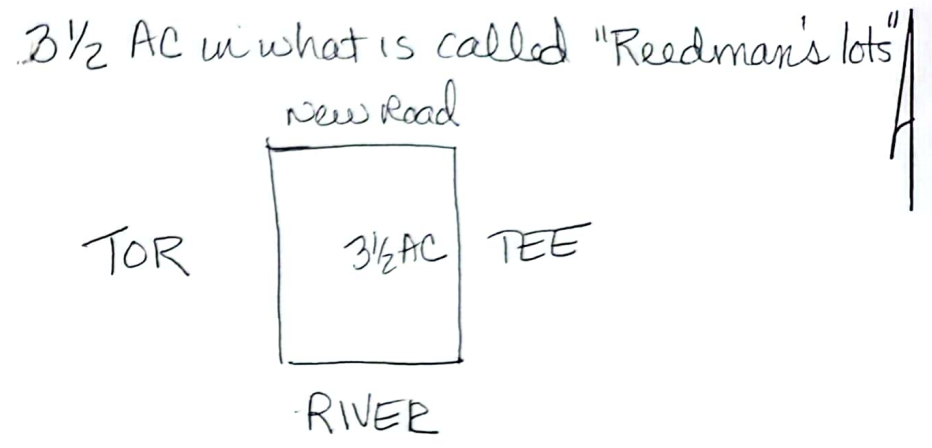 3½ AC in what is called "Reedman's lots"
New Road
TOR
3½ AC
TEE
RIVER